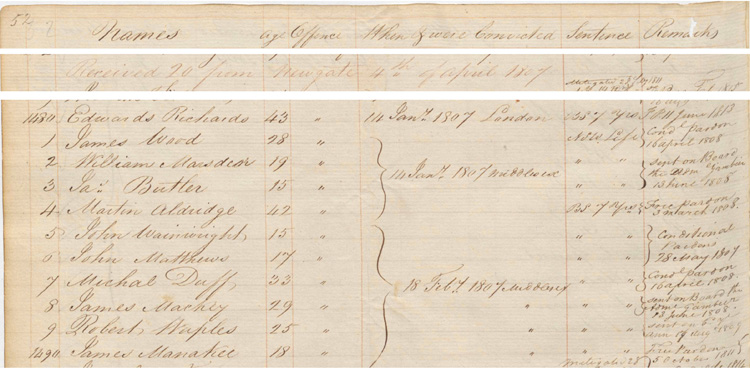 52
Names age Offence When & were Convicted Sentence Remarks
Received 20 from Newgate 4th of April 1807
1480 Edwards Richards 43 " 14 Jany 1807 London 7 Yrs
1 James Wood 28 " Life Condl pardon
16 april 1808
2 William 19 " 14 Jany 1807 Middlesex " " sent on Board
the
13 June 1808
3 Jas Butler 15 "
4 Martin Aldridge 42 " 7 Yrs Free pardon
3 march 1808
5 John Wainwright 15 " " " Conditional
Pardons
28 May 1807
6 John Matthews 17 " " "
7 Michal Duff 33 " 18 Feby 1807 Middx " " Condl pardon
16 april 1808
8 James Mackey 29 " " " " sent on Board the
13 June 1808
9 Robert Waples 25 " " " " sent on
1490 James Manakee 18 " " " " Free Pardon
5 October